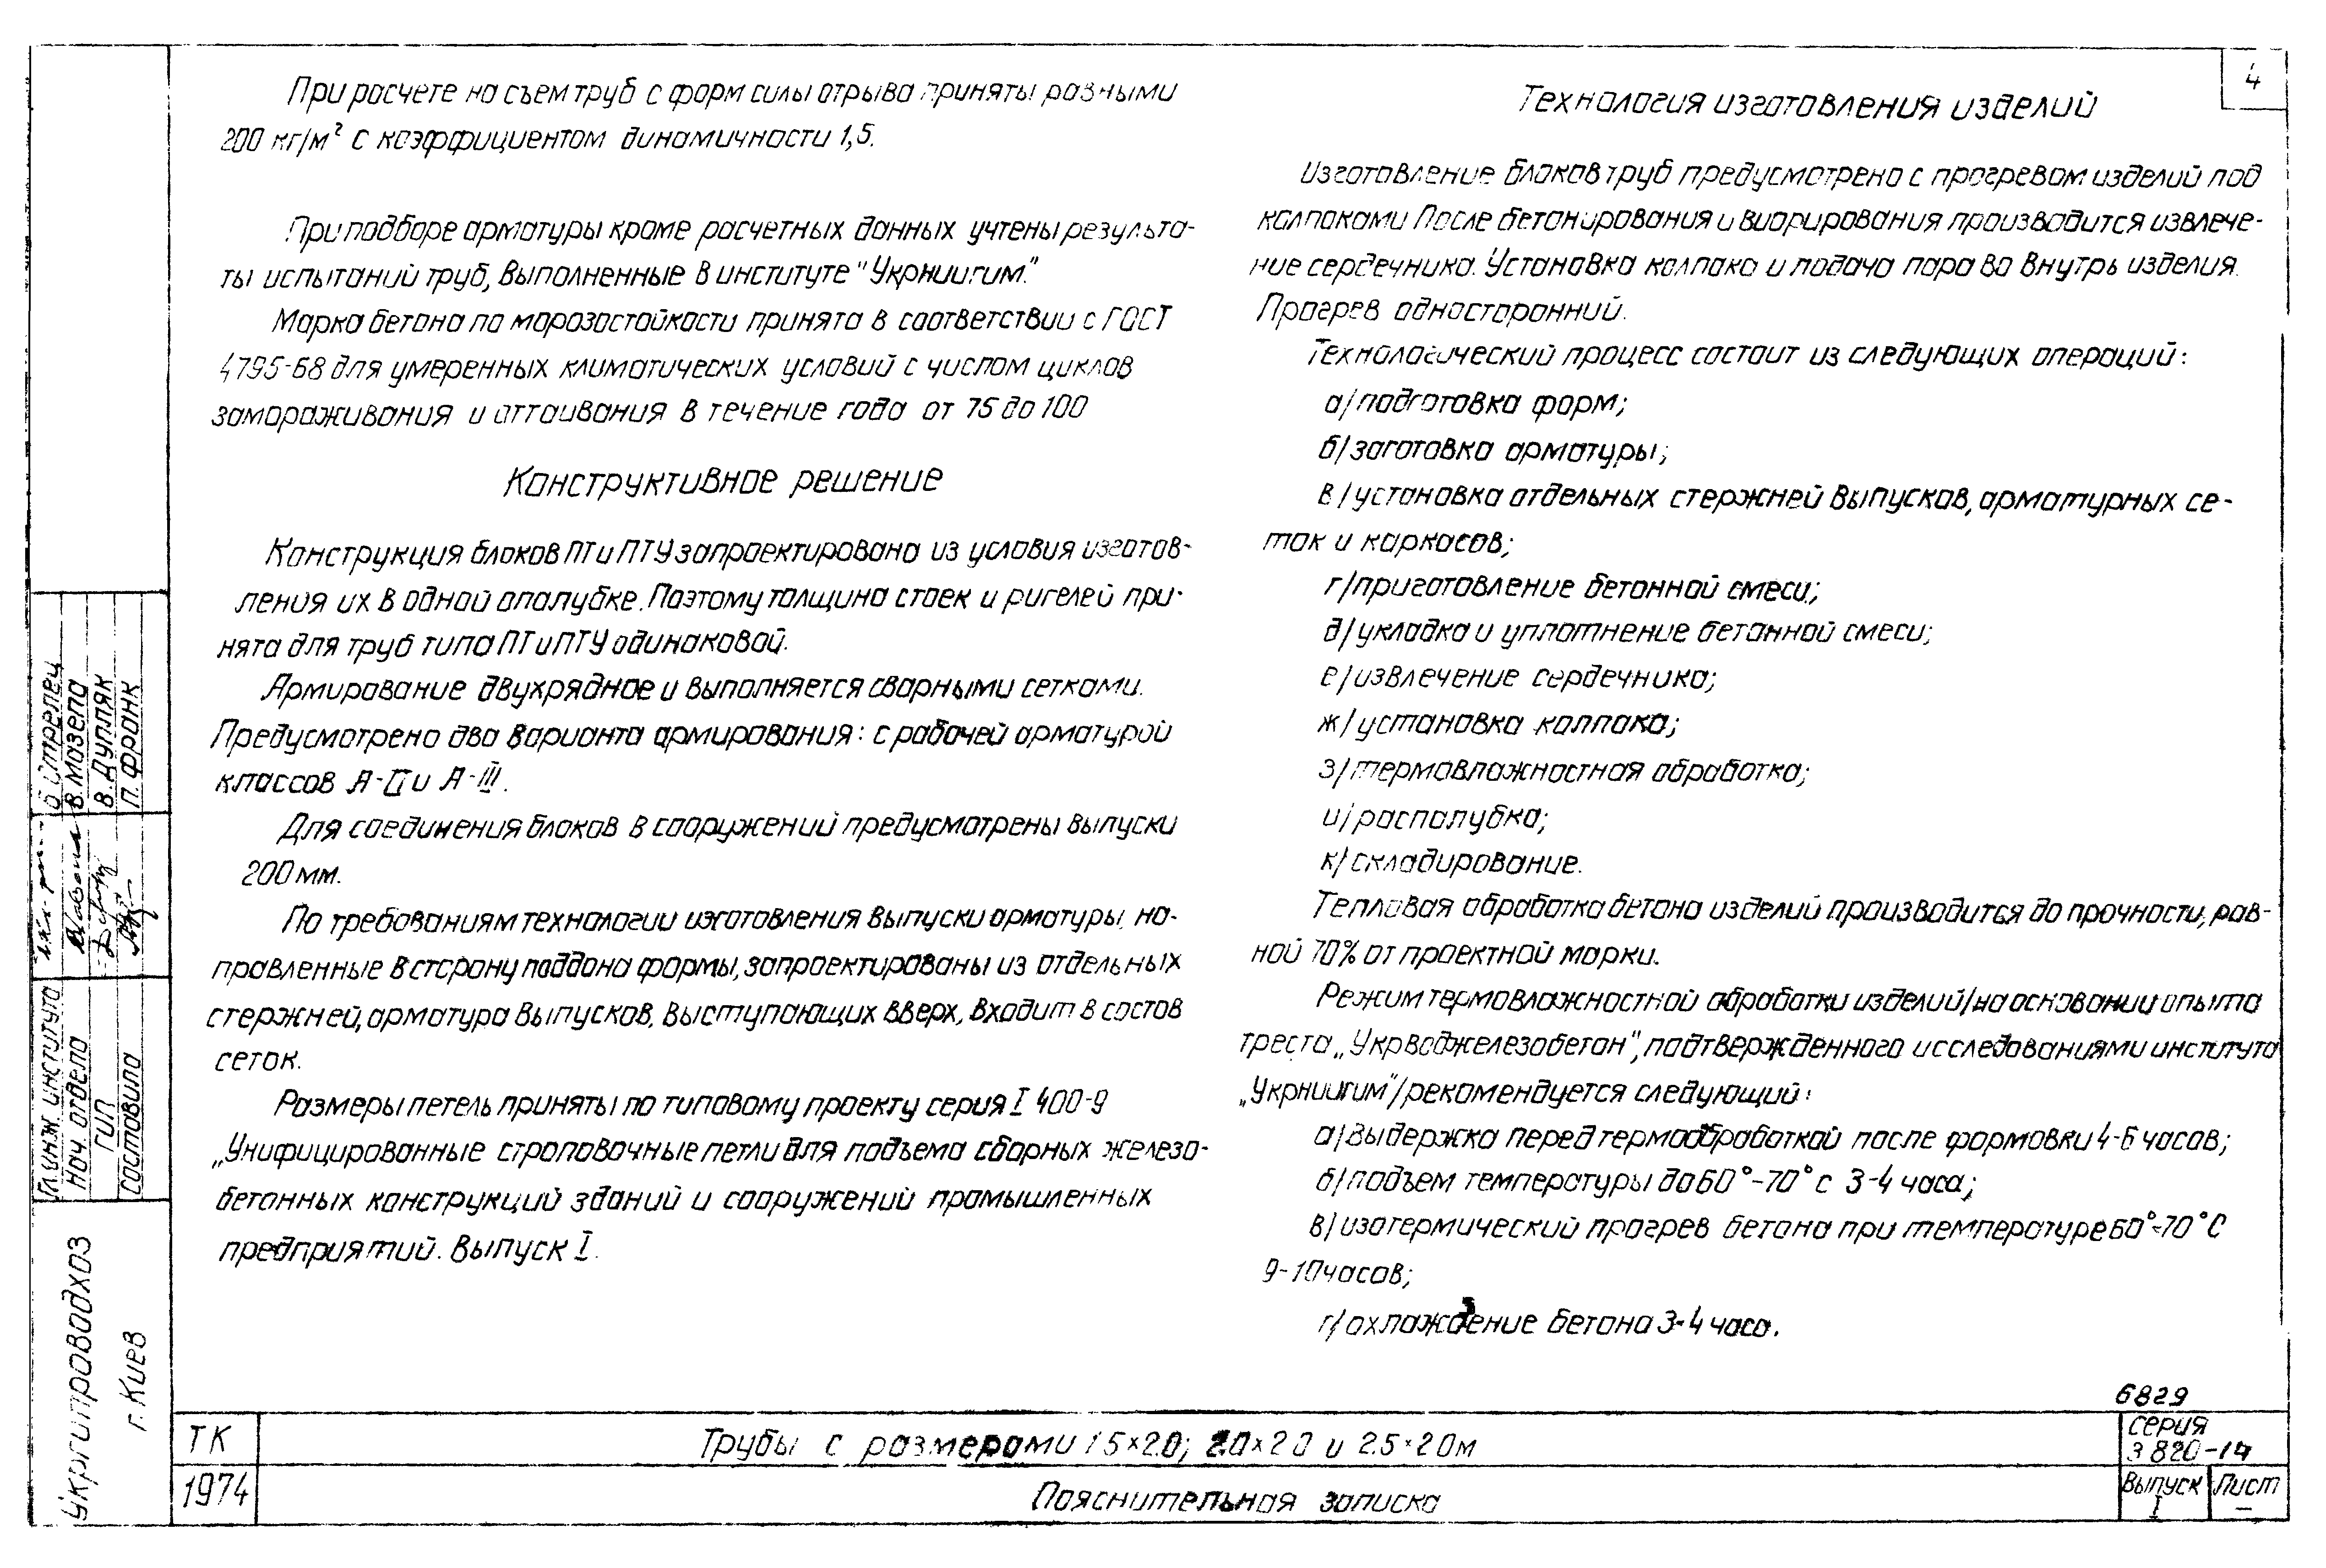 При расчете на съем труб с форм силы отрыва приняты равными
200 кг/м² с коэффициентом динамичности 1,5.
При подборе арматуры кроме расчетных данных учтены результа-
ты испытаний труб, выполненные в институте "Укрниигим."
Марка бетона по морозостойкости принята в соответствии с ГОСТ
4795-68 для умеренных климатических условий с числом циклов
замораживания и оттаивания в течение года от 75 до 100
Конструктивное решение
Конструкция блоков ПТ и ПТУ запроектирована из условия изготов-
ления их в одной опалубке. Поэтому толщина стоек и ригелей при-
нята для труб типа ПТ и ПТУ одинаковой.
Армирование двухрядное и выполняется сварными сетками.
Предусмотрено два варианта армирования: с рабочей арматурой
классов А-II и А-III.
Для соединения блоков в сооружений предусмотрены выпуски
200 мм.
По требованиям технологии изготовления выпуски арматуры, на-
правленные в сторону поддона формы, запроектированы из отдельных
стержней, арматура выпусков, выступающих вверх, входит в состав
сеток.
Размеры петель приняты по типовому проекту серия I 400-9
„Унифицированные строповочные петли для подъема сборных железо-
бетонных конструкций зданий и сооружений промышленных
предприятий. Выпуск I.
4
Технология изготовления изделий
Изготовление блоков труб предусмотрено с прогревом изделий под
колпаками После бетонирования и вибрирования производится извлече-
ние сердечника. Установка колпака и подача пара во внутрь изделия.
Прогрев односторонний.
Технологический процесс состоит из следующих операций:
а/подготовка форм;
б/заготовка арматуры;
в/установка отдельных стержней выпусков, арматурных се-
ток и каркасов;
г/приготовление бетонной смеси;
д/укладка и уплотнение бетонной смеси;
е/извлечение сердечника;
ж/установка колпака;
з/термовлажностная обработка;
и/распалубка;
к/складирование.
Тепловая обработка бетона изделий производится до прочности, рав-
ной 70% от проектной марки.
Режим термовлажностной обработки изделий/на основании опыта
треста „Укрводжелезобетон", подтвержденного исследованиями института
„Укрниигим"/рекомендуется следующий:
а/выдержка перед термообработкой после формовки 4-6 часов;
б/подъем температуры до 60°-70° с 3-4 часа;
в/изотермический прогрев бетона при температуре 60°-70°С
9-10 часов;
г/охлаждение бетона 3-4 часа.
6829
ТК
1974
Трубы с размерами 1.5×2.0; 2.0×2.0 и 2.5×2.0м
Пояснительная записка
серия
3 820-14
Выпуск
I
Лист
—
Гл. инж. института
Нач. отдела
ГИП
составила
Б Стрелец
В. Мазепа
В. Дупляк
П. Франк
Укргипроводхоз
г. Киев